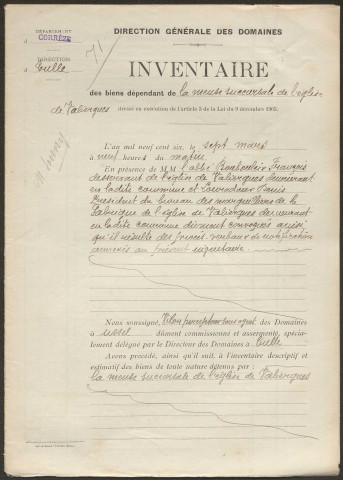 DIRECTION GÉNÉRALE DES DOMAINES
DÉPARTEMENT
d
CORRÈZE
71
DIRECTION
à Tulle
INVENTAIRE
des biens dépendant de la mense succursale de l'église
de Valiergues
dressé en exécution de l'article 3 de la Loi du 9 décembre 1905.
L'an mil neuf cent six, le sept mars
à neuf heures du matin
En présence de M.M. l'abbé François
desservant de l'église de Valiergues demeurant
en ladite commune et Louis
Président du bureau des marguilliers de la
Fabrique de l'église de Valiergues demeurant
en ladite commune dûment convoqués ainsi
qu'il résulte des procès-verbaux de notification
annexés au présent inventaire.
Nous soussigné, percepteur sous agent des Domaines
à Ussel dûment commissionné et assermenté, spécia-
lement délégué par le Directeur des Domaines à Tulle
Avons procédé, ainsi qu'il suit, à l'inventaire descriptif et
estimatif des biens de toute nature détenus par :
la mense succursale de l'église de Valiergues